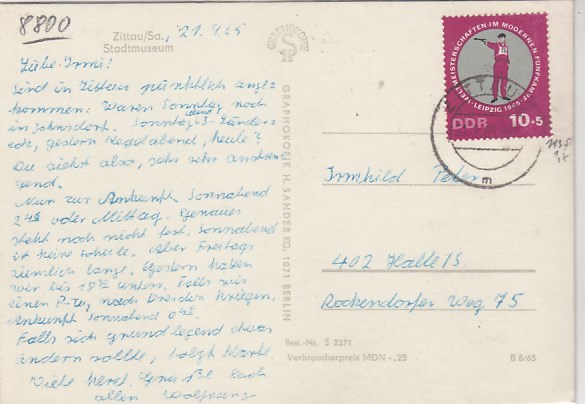 8800
Zittau/Sa.,
Stadtmuseum
21.9.65
Liebe Irmi!
Sind in Zittau pünktlich ange-
kommen. Waren Sonntag noch
in Jahnsdorf. Sonntag abend 3-Länder-
ecke, gestern Kegelabend, heute?
Du siehst also, sehr sehr anstren-
gend.
Nur zur Ankunft. Sonnabend
oder Mittag. Genaues
steht noch nicht fest. Sonnabend
ist keine Schule. Aber Freitags
ziemlich lange. Gestern hatten
wir bis Falls wir
einen P-Zug nach Dresden kriegen,
Ankunft Sonnabend
Falls sich grundlegend etwas
ändern sollte, folgt Karte.
Viele herzl. Grüße Euch
allen Wolfgang
GRAPHOKOPIE
GRAPHOKOPIE H. SANDER KG, 1071 BERLIN
WELTMEISTERSCHAFTEN IM MODERNEN FÜNFKAMPF
LEIPZIG 1965
DDR 10+5
Irmhild Peter
402 Halle/S.
Rockendorfer Weg 75
Best.-Nr. S 2271
Verbraucherpreis MDN -,25
B 8/65